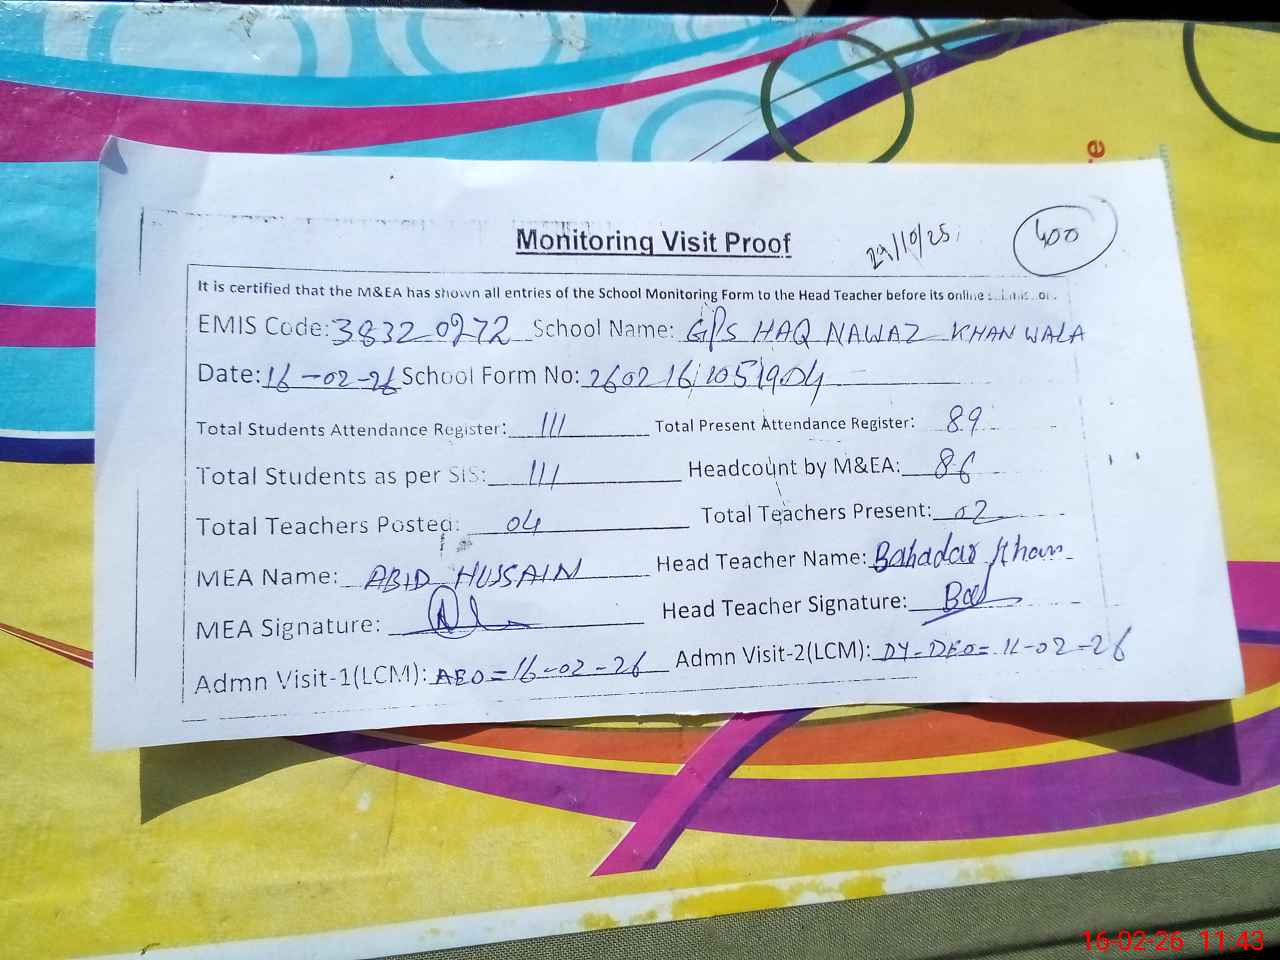 Monitoring Visit Proof
29/10/25
400
It is certified that the M&EA has shown all entries of the School Monitoring Form to the Head Teacher before its online
EMIS Code: 38320272 School Name: GPS HAQ NAWAZ KHAN WALA
Date: 16-02-26 School Form No: 2602161051904
Total Students Attendance Register: 111 Total Present Attendance Register: 89
Total Students as per SIS: 111 Headcount by M&EA: 86
Total Teachers Posted: 04 Total Teachers Present: 02
MEA Name: ABID HUSSAIN Head Teacher Name: Bahadar Khan
MEA Signature: Head Teacher Signature:
Admn Visit-1(LCM): AEO = 16-02-26 Admn Visit-2(LCM): DY-DEO = 16-02-26
re
16-02-26 11:43